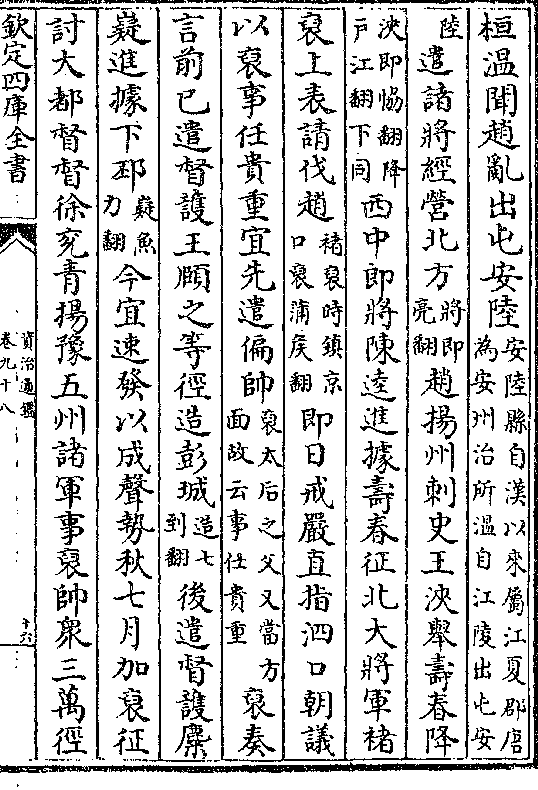 桓溫聞趙亂出屯安陸安陸縣自漢以來屬江夏郡唐為安州治所溫自江陵出屯安
陸遣諸將經營北方將即亮翻趙揚州刺史王浹舉壽春降
浹即恊翻降戶江翻下同西中郎將陳逵進據壽春征北大將軍褚
裒上表請伐趙褚裒時鎮京口裒蒲侯翻即日戒嚴直指泗口朝議
以裒事任貴重宜先遣偏帥裒太后之父又當方面故云事任貴重裒奏
言前已遣督護王頤之等徑造彭城造七到翻後遣督護麋
嶷進據下邳嶷魚力翻今宜速發以成聲勢秋七月加裒征
討大都督督徐兗青揚豫五州諸軍事裒帥衆三萬徑
欽定四庫全書
資治通鑑
卷九十八
十六